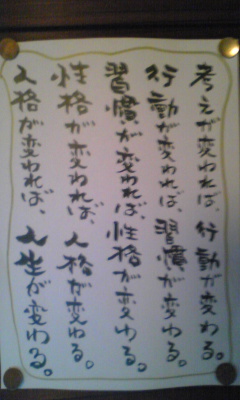 考えが変われば、行動が変わる。
行動が変われば、習慣が変わる。
習慣が変われば、性格が変わる。
性格が変われば、人格が変わる。
人格が変われば、人生が変わる。